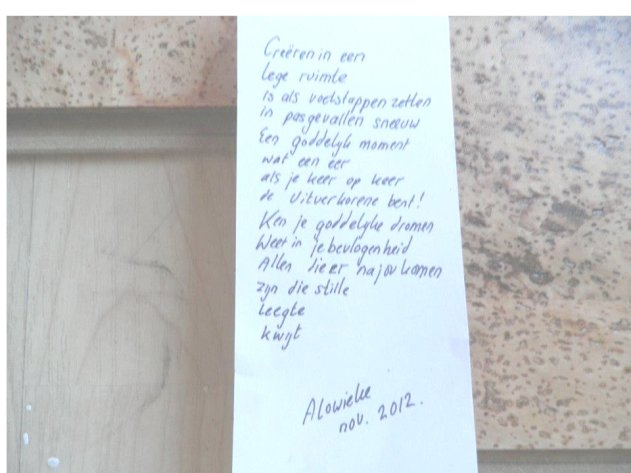 Creëren in een
lege ruimte
is als voetstappen zetten
in pasgevallen sneeuw
Een goddelyk moment
wat een eer
als je keer op keer
de uitverkorene bent!
Ken je goddelyke dromen
Weet in je bevlogenheid
Allen die er na jou komen
zyn die stille
leegte
kwyt
Alowieke
nov. 2012.